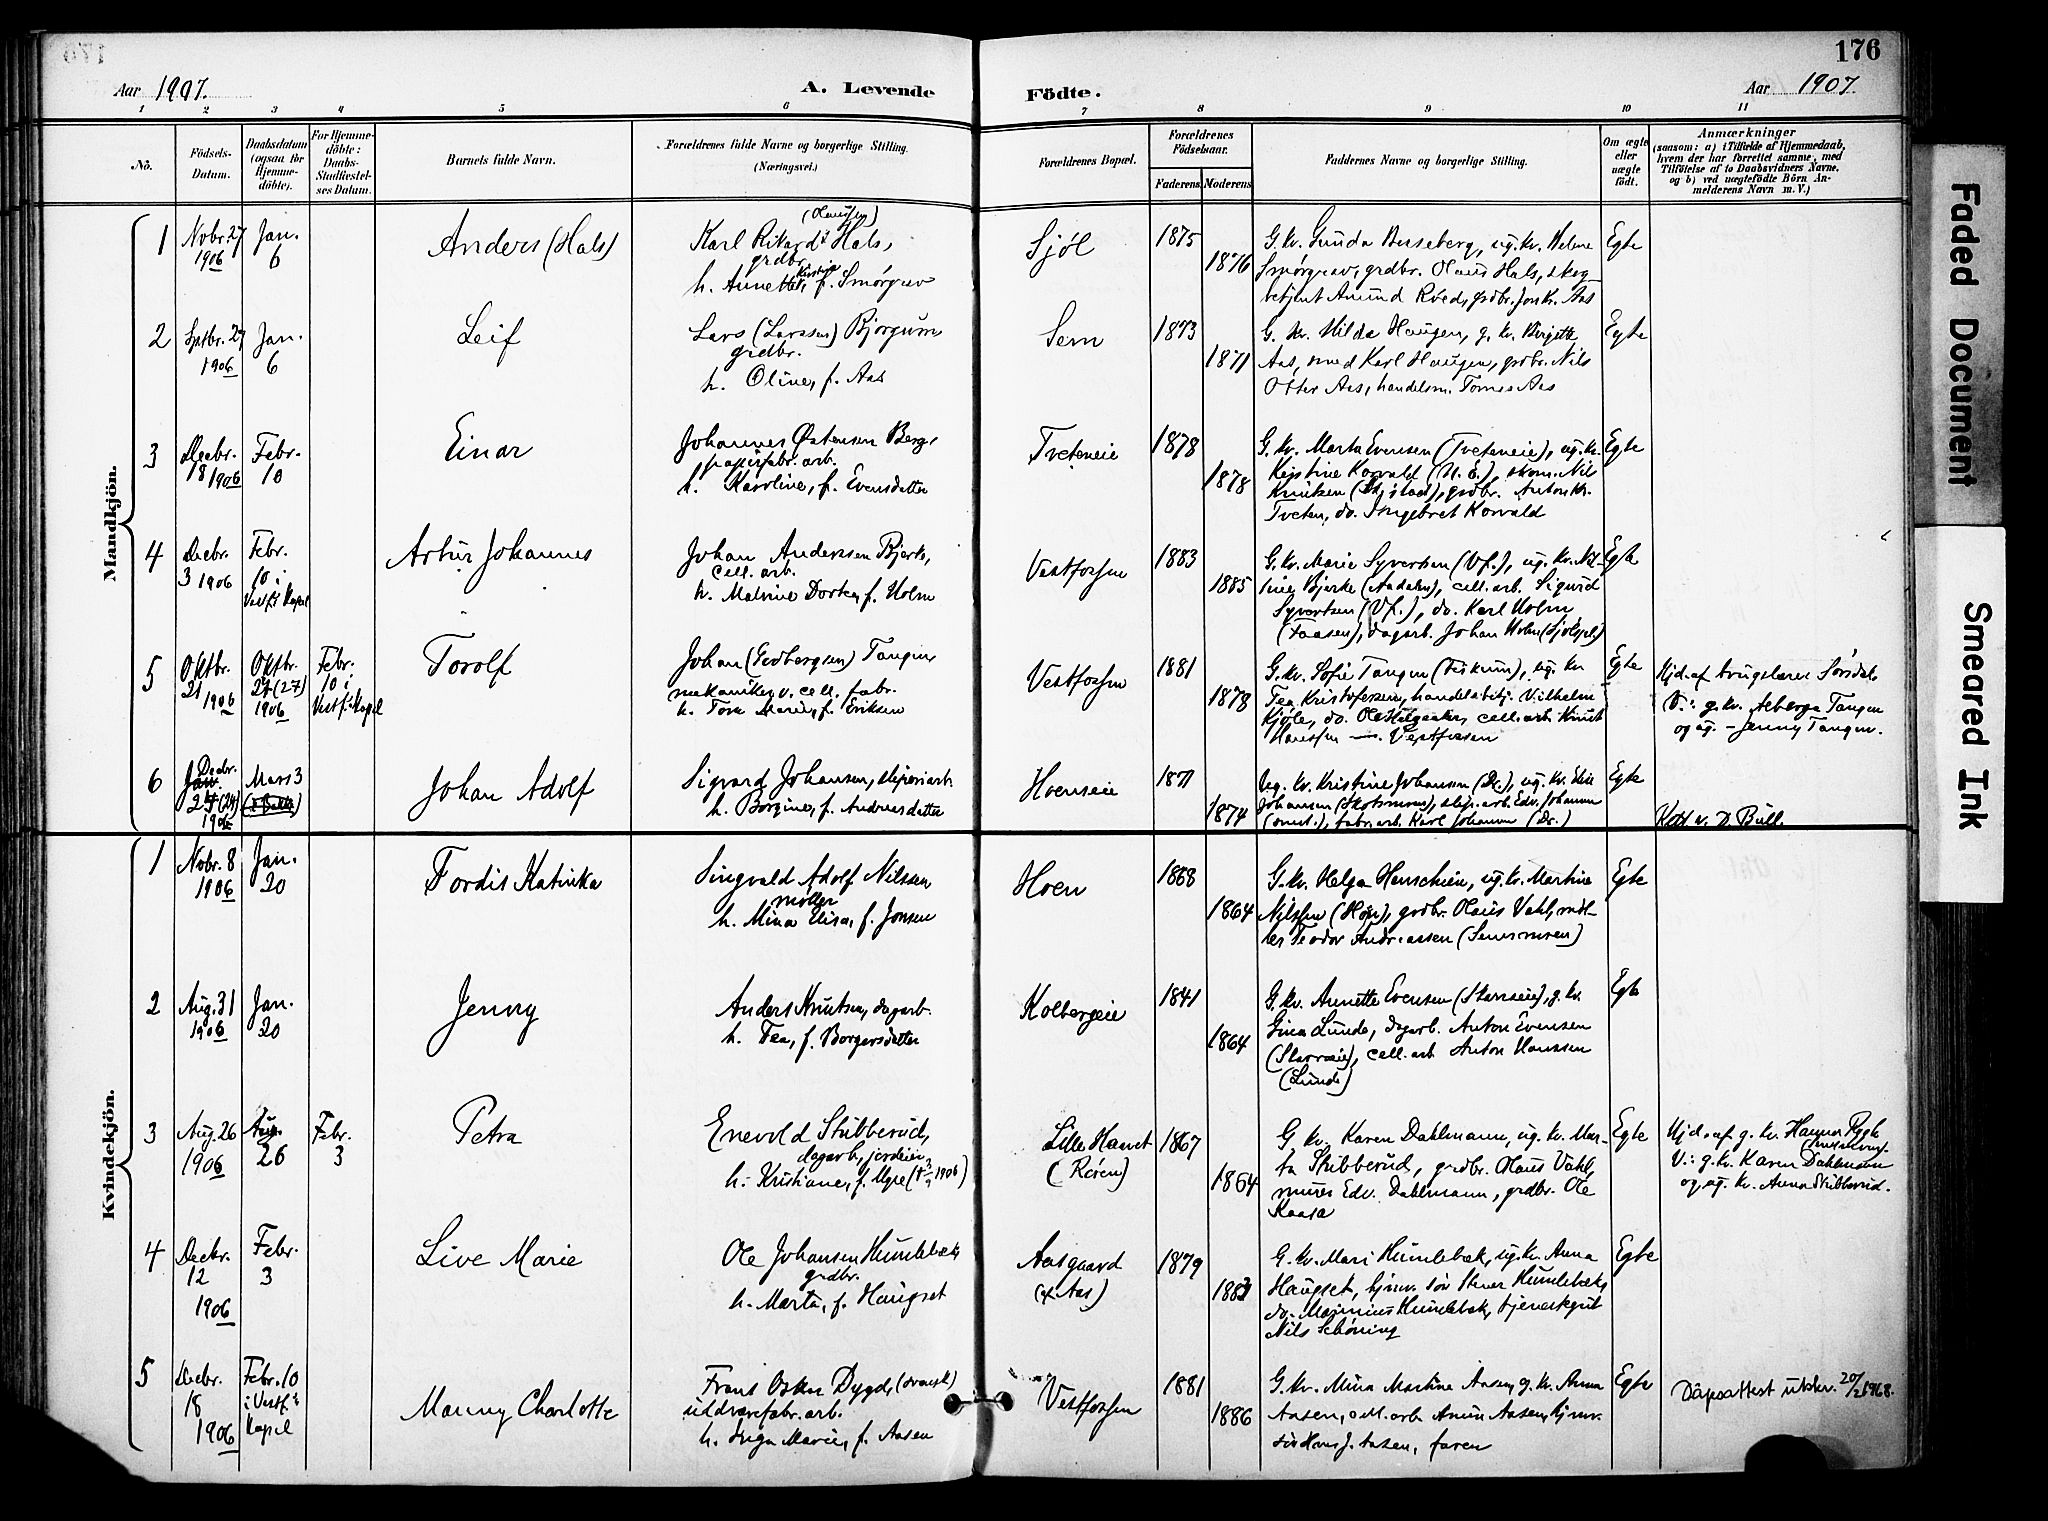 176
Aar 1907.
A. Levende
Födte.
Aar 1907.
1 2 3 4 5 6 7 8 9 10 11
No.
Födsels-Datum.
Daabsdatum (ogsaa for Hjemme-döbte).
For Hjemme-döbte: Daabs-Stadfæstel-ses Datum.
Barnets fulde Navn.
Forældrenes fulde Navne og borgerlige Stilling.
(Næringsvei.)
Forældrenes Bopæl.
Forældrenes Födselsaar.
Faderens. Moderens.
Faddernes Navne og borgerlige Stilling.
Om ægte eller uægte födt.
Anmærkninger
(saasom: a) i Tilfælde af Hjemmedaab,
hvem der har forrettet samme, med
Tilföielse af to Daabsvidners Navne,
og b) ved uægtefödte Börn An-
melderens Navn m. V.)
Mandkjön.
1 Novbr. 27 1906 Jan. 6 Anders (Hals)
(Olaussen)
Karl Rikard Hals,
grdbr.
h. Annette Kirstine, f. Smørgrav
Sjøl 1875 1876
G. kv. Gunda Burseberg, ug. kv. Helene
Smørgrav, grdbr. Olaus Hals, skog-
betjent Amund Røed, grdbr. Jon Kr. Aas
Egte
2 Septbr. 27 1906 Jan. 6 Leif
Lars (Larssen) Bjørgum
grdbr.
h. Oline, f. Aas
Sem 1873 1871
G. kv. Hilda Haugen, g. kv. Birgitte
Aas, smed Karl Haugen, grdbr. Nils
Otter Aas, handelsm. Tomes Aas
Egte
3 Decbr. 18 1906 Febr. 10 Einar
Johannes Østensen Berg,
papirfabr. arb.
h. Karoline, f. Evensdatter
Tveteneie 1878 1878
G. kv. Marta Evensen (Tveteneie), ug. kv.
Kristine Korvald (N. E.), skom. Nils
Knutsen, grdbr. Anton Kr.
Tveten, do. Ingebret Korvald
Egte
4 Decbr. 3 1906 Febr. 10 i Vestf. Kapel Artur Johannes
Johan Anderssen Bjerke,
cell. arb.
h. Malvine Dortea, f. Holm
Vestfossen 1883 1885
G. kv. Marie Syvertsen (Vf.), ug. kv. Nil-
sine Bjerke (Aadalen), cell. arb. Sigurd
Syvertsen (Vf.), do. Karl Holm
(Faasen), dagarb. Johan Holm
Egte
5 Oktbr. 21 1906 Oktbr. 27 (27) 1906 Febr. 10 i Vestf. Kapel Torolf
Johan (Gudbergsen) Tangen
mekaniker v. cell. fabr.
h. Tora Marie, f. Eriksen
Vestfossen 1881 1878
G. kv. Sofie Tangen (Fiskum), ug. kv.
Tea Kristofersen, handelsbetj. Vilhelm
Kjøle, do. Ole Helgaaker, cell. arb. Knut
Hanssen — . Vestfossen
Egte
Hjd. af brugslærer Sørsdal
V.: g. kv. Alberga Tangen
og ug. — Jenny Tangen.
6 Decbr. 24 1906 Mars 3 Johan Adolf
Sigvard Johansen, sliperiarb.
h. Borgine, f. Andreasdatter
Hoenseie 1871 1874
Ug. kv. Kristine Johansen (Dr.), ug. kv. Elise
Johansen (Skotsmoen), slip. arb. Edv. Johansen
fabr. arb. Karl Johansen (Dr.)
Egte
D. Bull.
Kvindekjön.
1 Novbr. 8 1906 Jan. 20 Tordis Katinka
Singvald Adolf Nilsen
møller
h. Mina Elisa, f. Jonsen
Hoen 1868 1864
G. kv. Helga Henschien, ug. kv. Martine
Nilssen (Hoen), grdbr. Olaus Vahl, møl-
ler Teodor Andreassen (Semsmoen)
Egte
2 Aug. 31 1906 Jan. 20 Jenny
Anders Knutsen, dagarb.
h. Tea, f. Borgersdatter
Kolbergeie 1841 1864
G. kv. Annette Evensen (Starraeie), g. kv.
Gina Lunde, dagarb. Anton Evensen
(Starraeie), cell. arb. Anton Hanssen
(Lunde)
Egte
3 Aug. 26 1906 Aug. 26 Febr. 3 Petra
Enevold Stubberud,
dagarb., jordeier,
h. Kristiane, f. Myre († 1906)
Lille Hamet (Røren) 1867 1864
G. kv. Karen Dahlmann, ug. kv. Mar-
ta Stubberud, grdbr. Olaus Vahl,
murer Edv. Dahlmann, grdbr. Ole
Kaasa
Egte
Hjd. af g. kv. Hanna Rygh
V.: g. kv. Karen Dahlmann
og ug. kv. Anna Stubberud.
4 Decbr. 12 1906 Febr. 3 Live Marie
Ole Johansen Humlebæk
grdbr.
h. Marta, f. Haugset
Aasgaard (x Aas) 1879 1883
G. kv. Mari Humlebæk, ug. kv. Anna
Haugset, hjmv. søn Stener Humlebæk,
do. Maximius Humlebæk, tjenestegut
Nils Schøning
Egte
5 Decbr. 18 1906 Febr. 10 i Vestf. Kapel Manny Charlotte
Frans Oskar Dygd, (svensk)
uldvarefabr. arb.
h. Inga Marie, f. Aasen
Vestfossen 1881 1886
G. kv. Mina Martine Aasen, g. kv. Anna
Aasen, cell. arb. Anun Aasen, hjmv.
søn Hans J. Aasen, faren
Egte
Dåpsattest utskr. 20/2 1968.
Faded Document
Smeared Ink